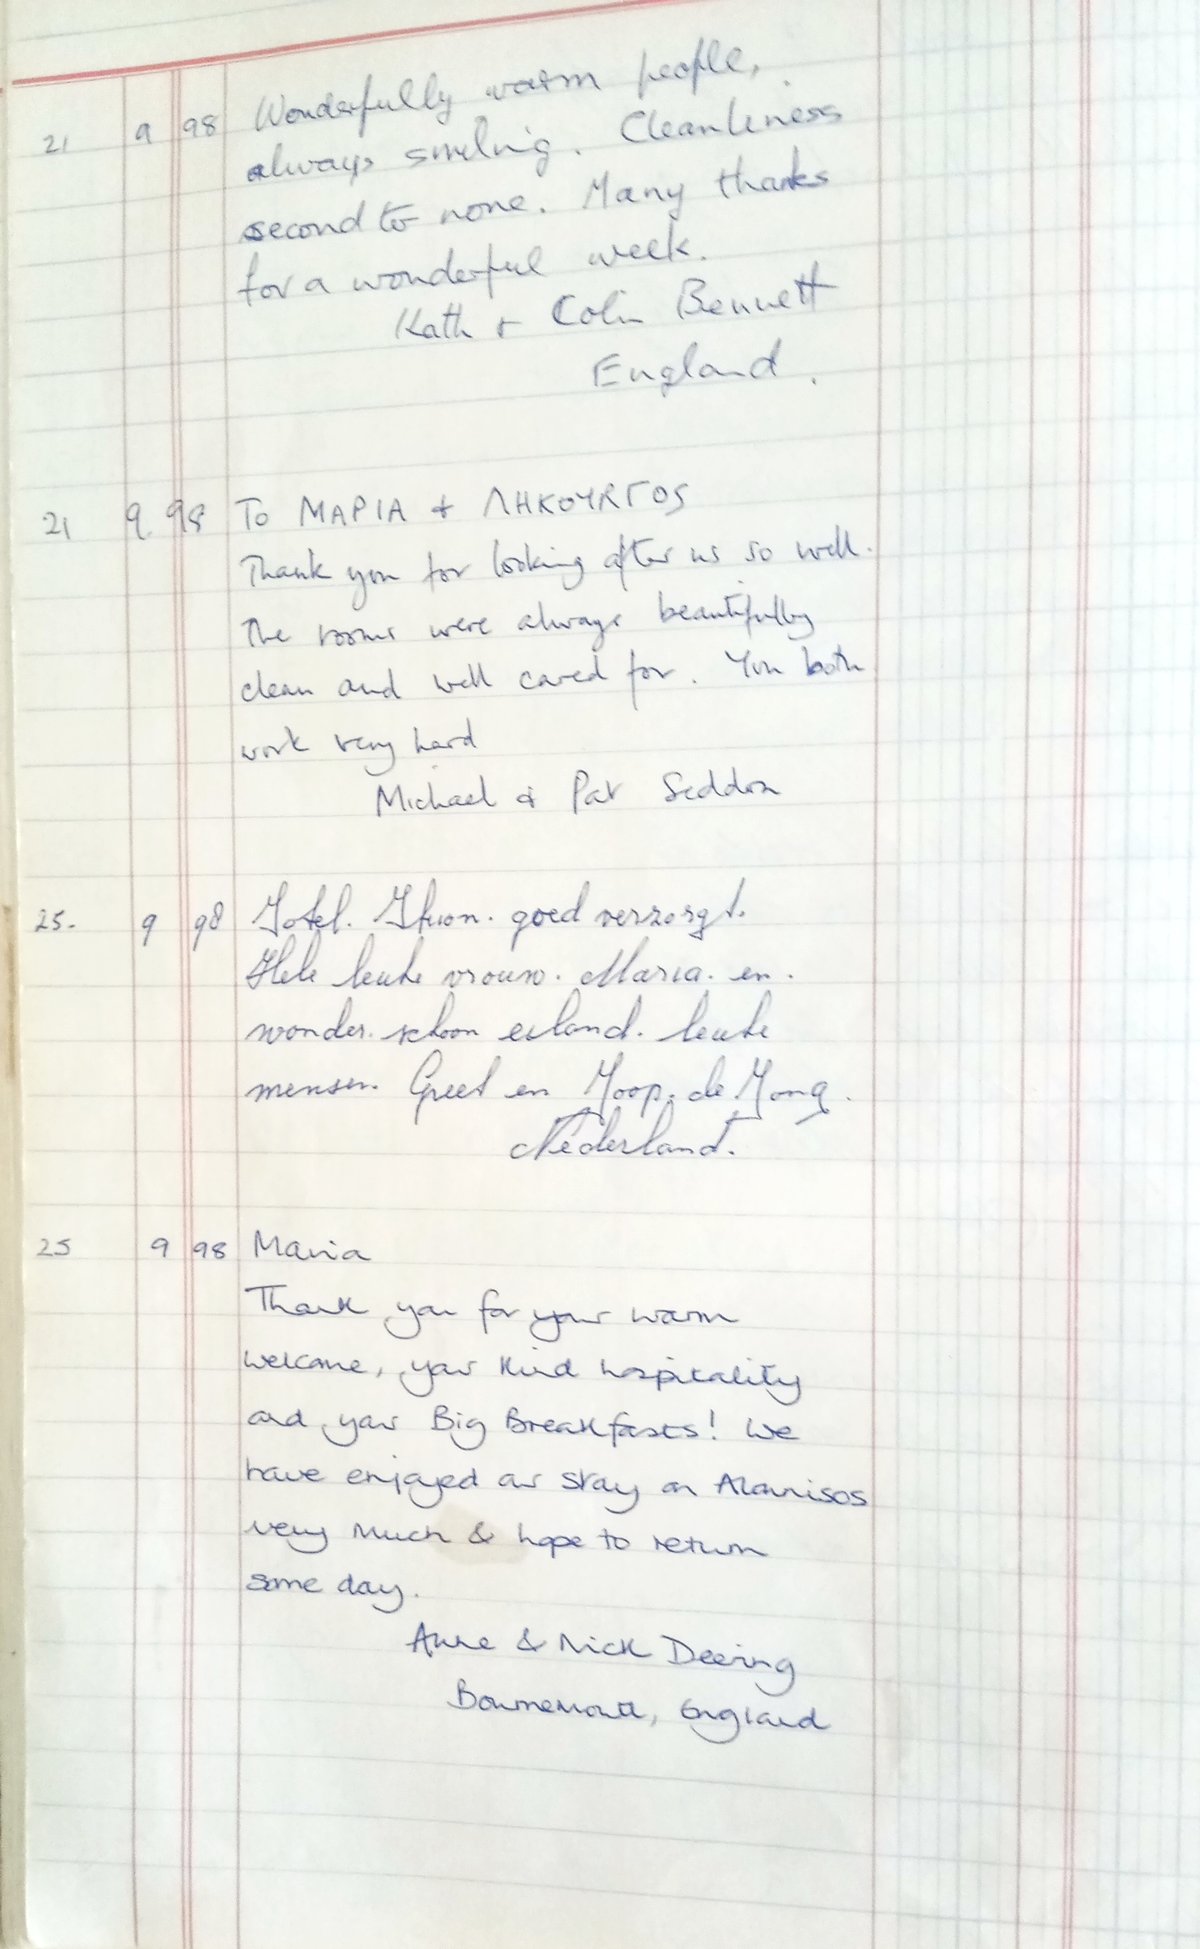 21 9 98 Wonderfully warm people,
always smiling. Cleanliness
second to none. Many thanks
for a wonderful week.
Kath + Colin Bennett
England.
21 9. 98 To ΜΑΡΙΑ + ΛΗΚΟΥRΓΟS
Thank you for looking after us so well.
The rooms were always beautifully
clean and well cared for. You both
work very hard
Michael & Pat Seddon
25. 9 98 Hotel. goed verzorgt.
Hele leuke vrouw. Maria. en.
wonder. schoon eiland. leuke
mensen. Greet en Joop. de Jong.
Nederland.
25 9 98 Maria
Thank you for your warm
welcome, your kind hospitality
and your Big Breakfasts! We
have enjoyed our stay on Alonnisos
very much & hope to return
some day.
Anne & Nick Deering
Bournemouth, England